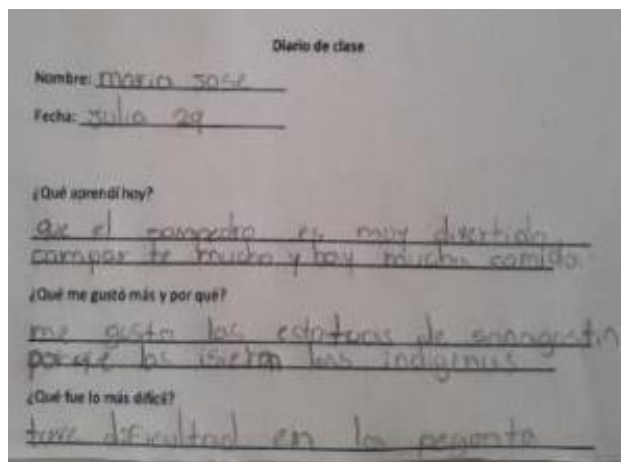 Diario de clase
Nombre: maria jose
Fecha: julio 29
¿Qué aprendí hoy?
que el sampedro es muy divertido
compar te mucho y hay mucha comida
¿Qué me gustó más y por qué?
me gusta las estatuas de sanagustin
porque las isieron los indigenas
¿Qué fue lo más difícil?
tuve dificultad en la pegonta